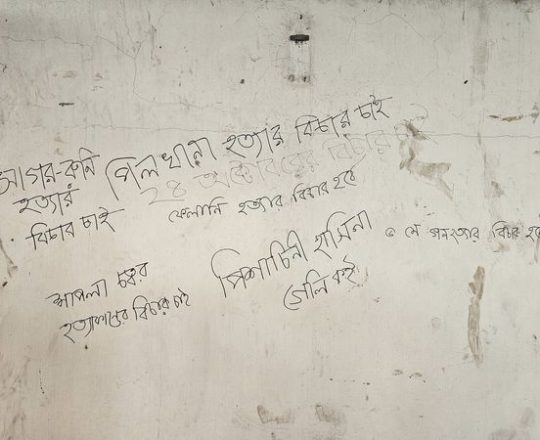 সাগর-রুনি
হত্যার
বিচার চাই
পিলখানা হত্যার বিচার চাই
২৪ অক্টোবরের বিচার চাই
ফেলানি হত্যার বিচার হবে
শাপলা চত্বর
হত্যাকান্ডের বিচার চাই
পিশাচিনী হাসিনা
গেলি কই
৫ মে গনহত্যার বিচার হবে